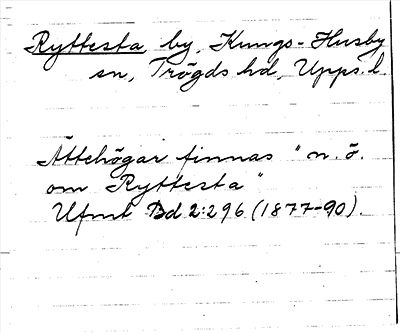 Ryttesta, by, Kungs-Husby
sn, Trögds hd, Upps. l.
Ättehögar finnas "n.ö.
om Ryttesta"
Ufmt Bd 2:296 (1877-90).